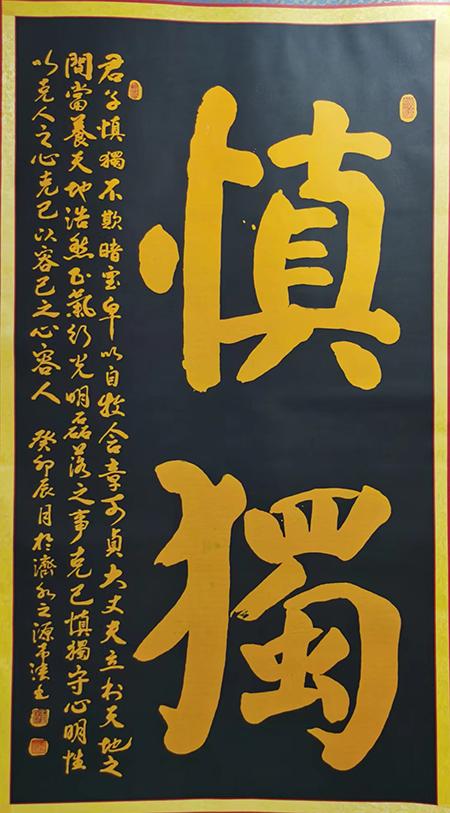 慎獨
君子慎獨不欺暗室卑以自牧含章可貞大丈夫立於天地之
間當養天地浩然正氣行光明磊落之事克己慎獨守心明性
以克人之心克己以容己之心容人 癸卯辰月於濟水之源